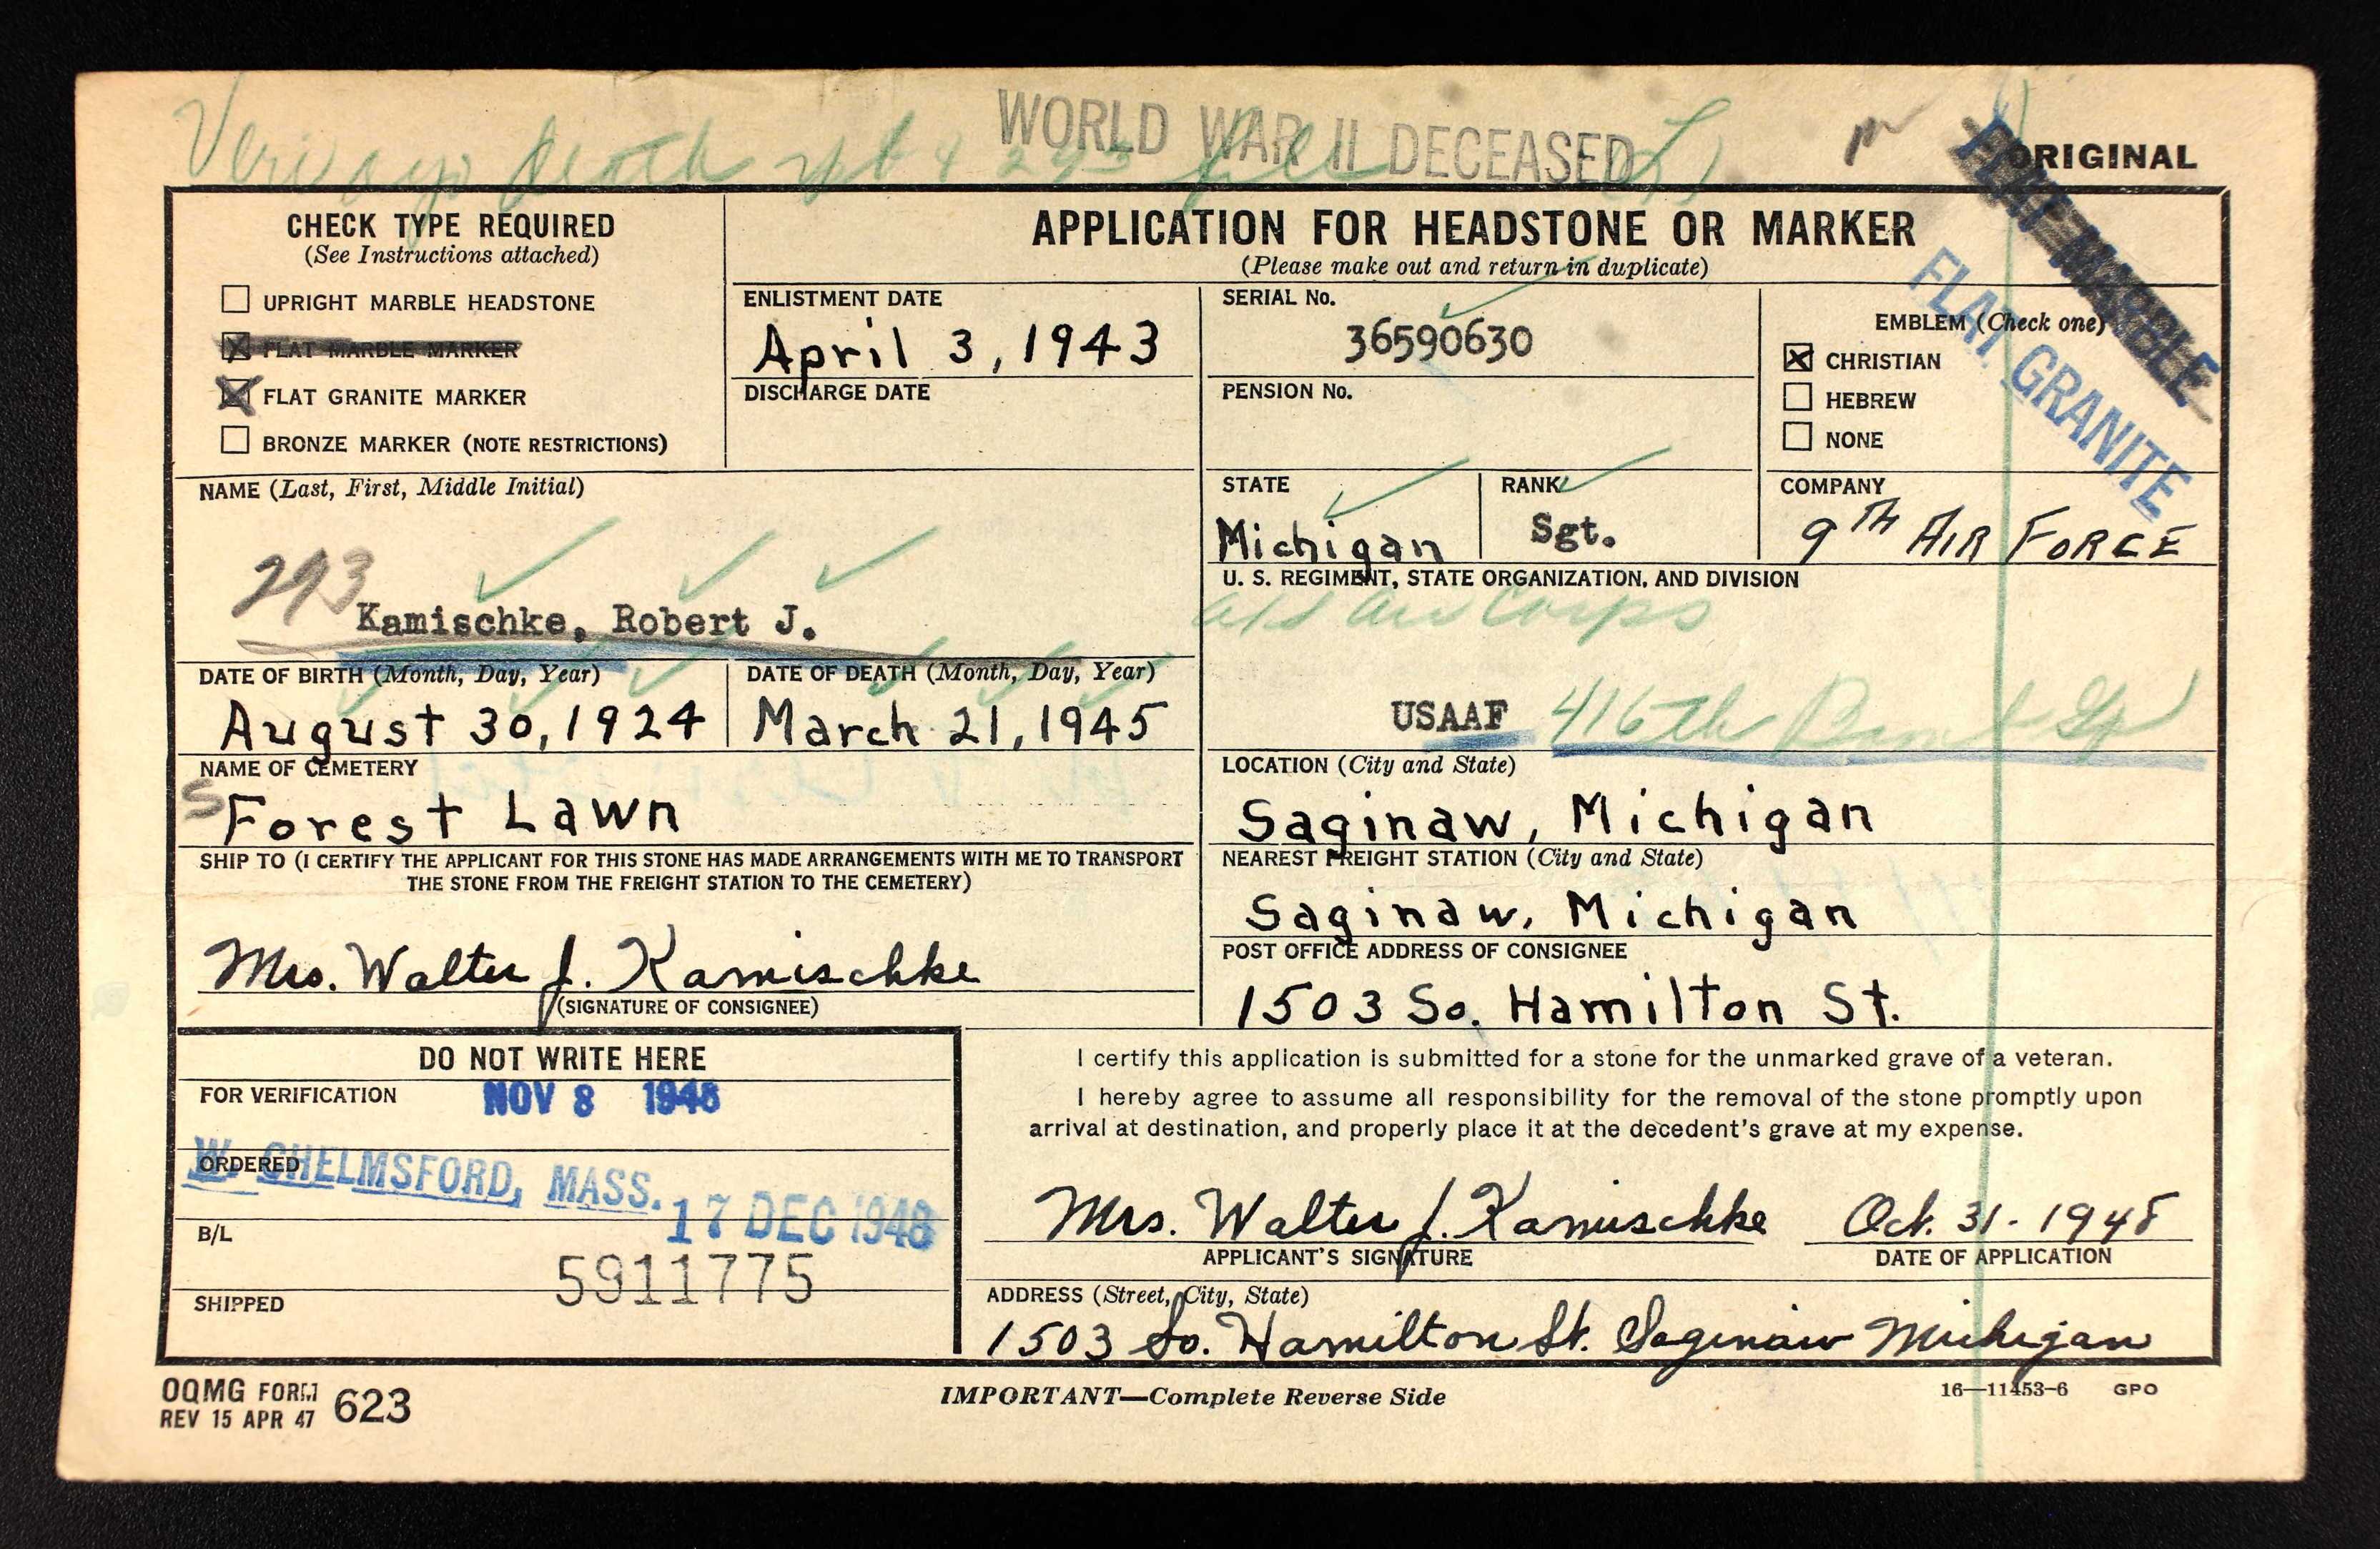 WORLD WAR II DECEASED
ORIGINAL
FLAT MARBLE
FLAT GRANITE
CHECK TYPE REQUIRED
(See Instructions attached)
UPRIGHT MARBLE HEADSTONE
FLAT MARBLE MARKER
FLAT GRANITE MARKER
BRONZE MARKER (NOTE RESTRICTIONS)
APPLICATION FOR HEADSTONE OR MARKER
(Please make out and return in duplicate)
ENLISTMENT DATE
April 3, 1943
DISCHARGE DATE
SERIAL No.
36590630
PENSION No.
EMBLEM (Check one)
CHRISTIAN
HEBREW
NONE
NAME (Last, First, Middle Initial)
293
Kamischke, Robert J.
STATE
Michigan
RANK
Sgt.
COMPANY
9TH AIR FORCE
U. S. REGIMENT, STATE ORGANIZATION, AND DIVISION
Air Corps
USAAF 416th Bomb Gp
DATE OF BIRTH (Month, Day, Year)
August 30, 1924
DATE OF DEATH (Month, Day, Year)
March 21, 1945
NAME OF CEMETERY
S Forest Lawn
LOCATION (City and State)
Saginaw, Michigan
SHIP TO (I CERTIFY THE APPLICANT FOR THIS STONE HAS MADE ARRANGEMENTS WITH ME TO TRANSPORT
THE STONE FROM THE FREIGHT STATION TO THE CEMETERY)
Mrs. Walter J. Kamischke
(SIGNATURE OF CONSIGNEE)
NEAREST FREIGHT STATION (City and State)
Saginaw, Michigan
POST OFFICE ADDRESS OF CONSIGNEE
1503 So. Hamilton St.
DO NOT WRITE HERE
FOR VERIFICATION NOV 8 1948
ORDERED
W. CHELMSFORD, MASS.
17 DEC 1948
B/L
5911775
SHIPPED
I certify this application is submitted for a stone for the unmarked grave of a veteran.
I hereby agree to assume all responsibility for the removal of the stone promptly upon
arrival at destination, and properly place it at the decedent's grave at my expense.
Mrs. Walter J. Kamischke Oct. 31 - 1948
APPLICANT'S SIGNATURE DATE OF APPLICATION
ADDRESS (Street, City, State)
1503 So. Hamilton St. Saginaw Michigan
OQMG FORM 623
REV 15 APR 47
IMPORTANT—Complete Reverse Side
16—11453-6 GPO